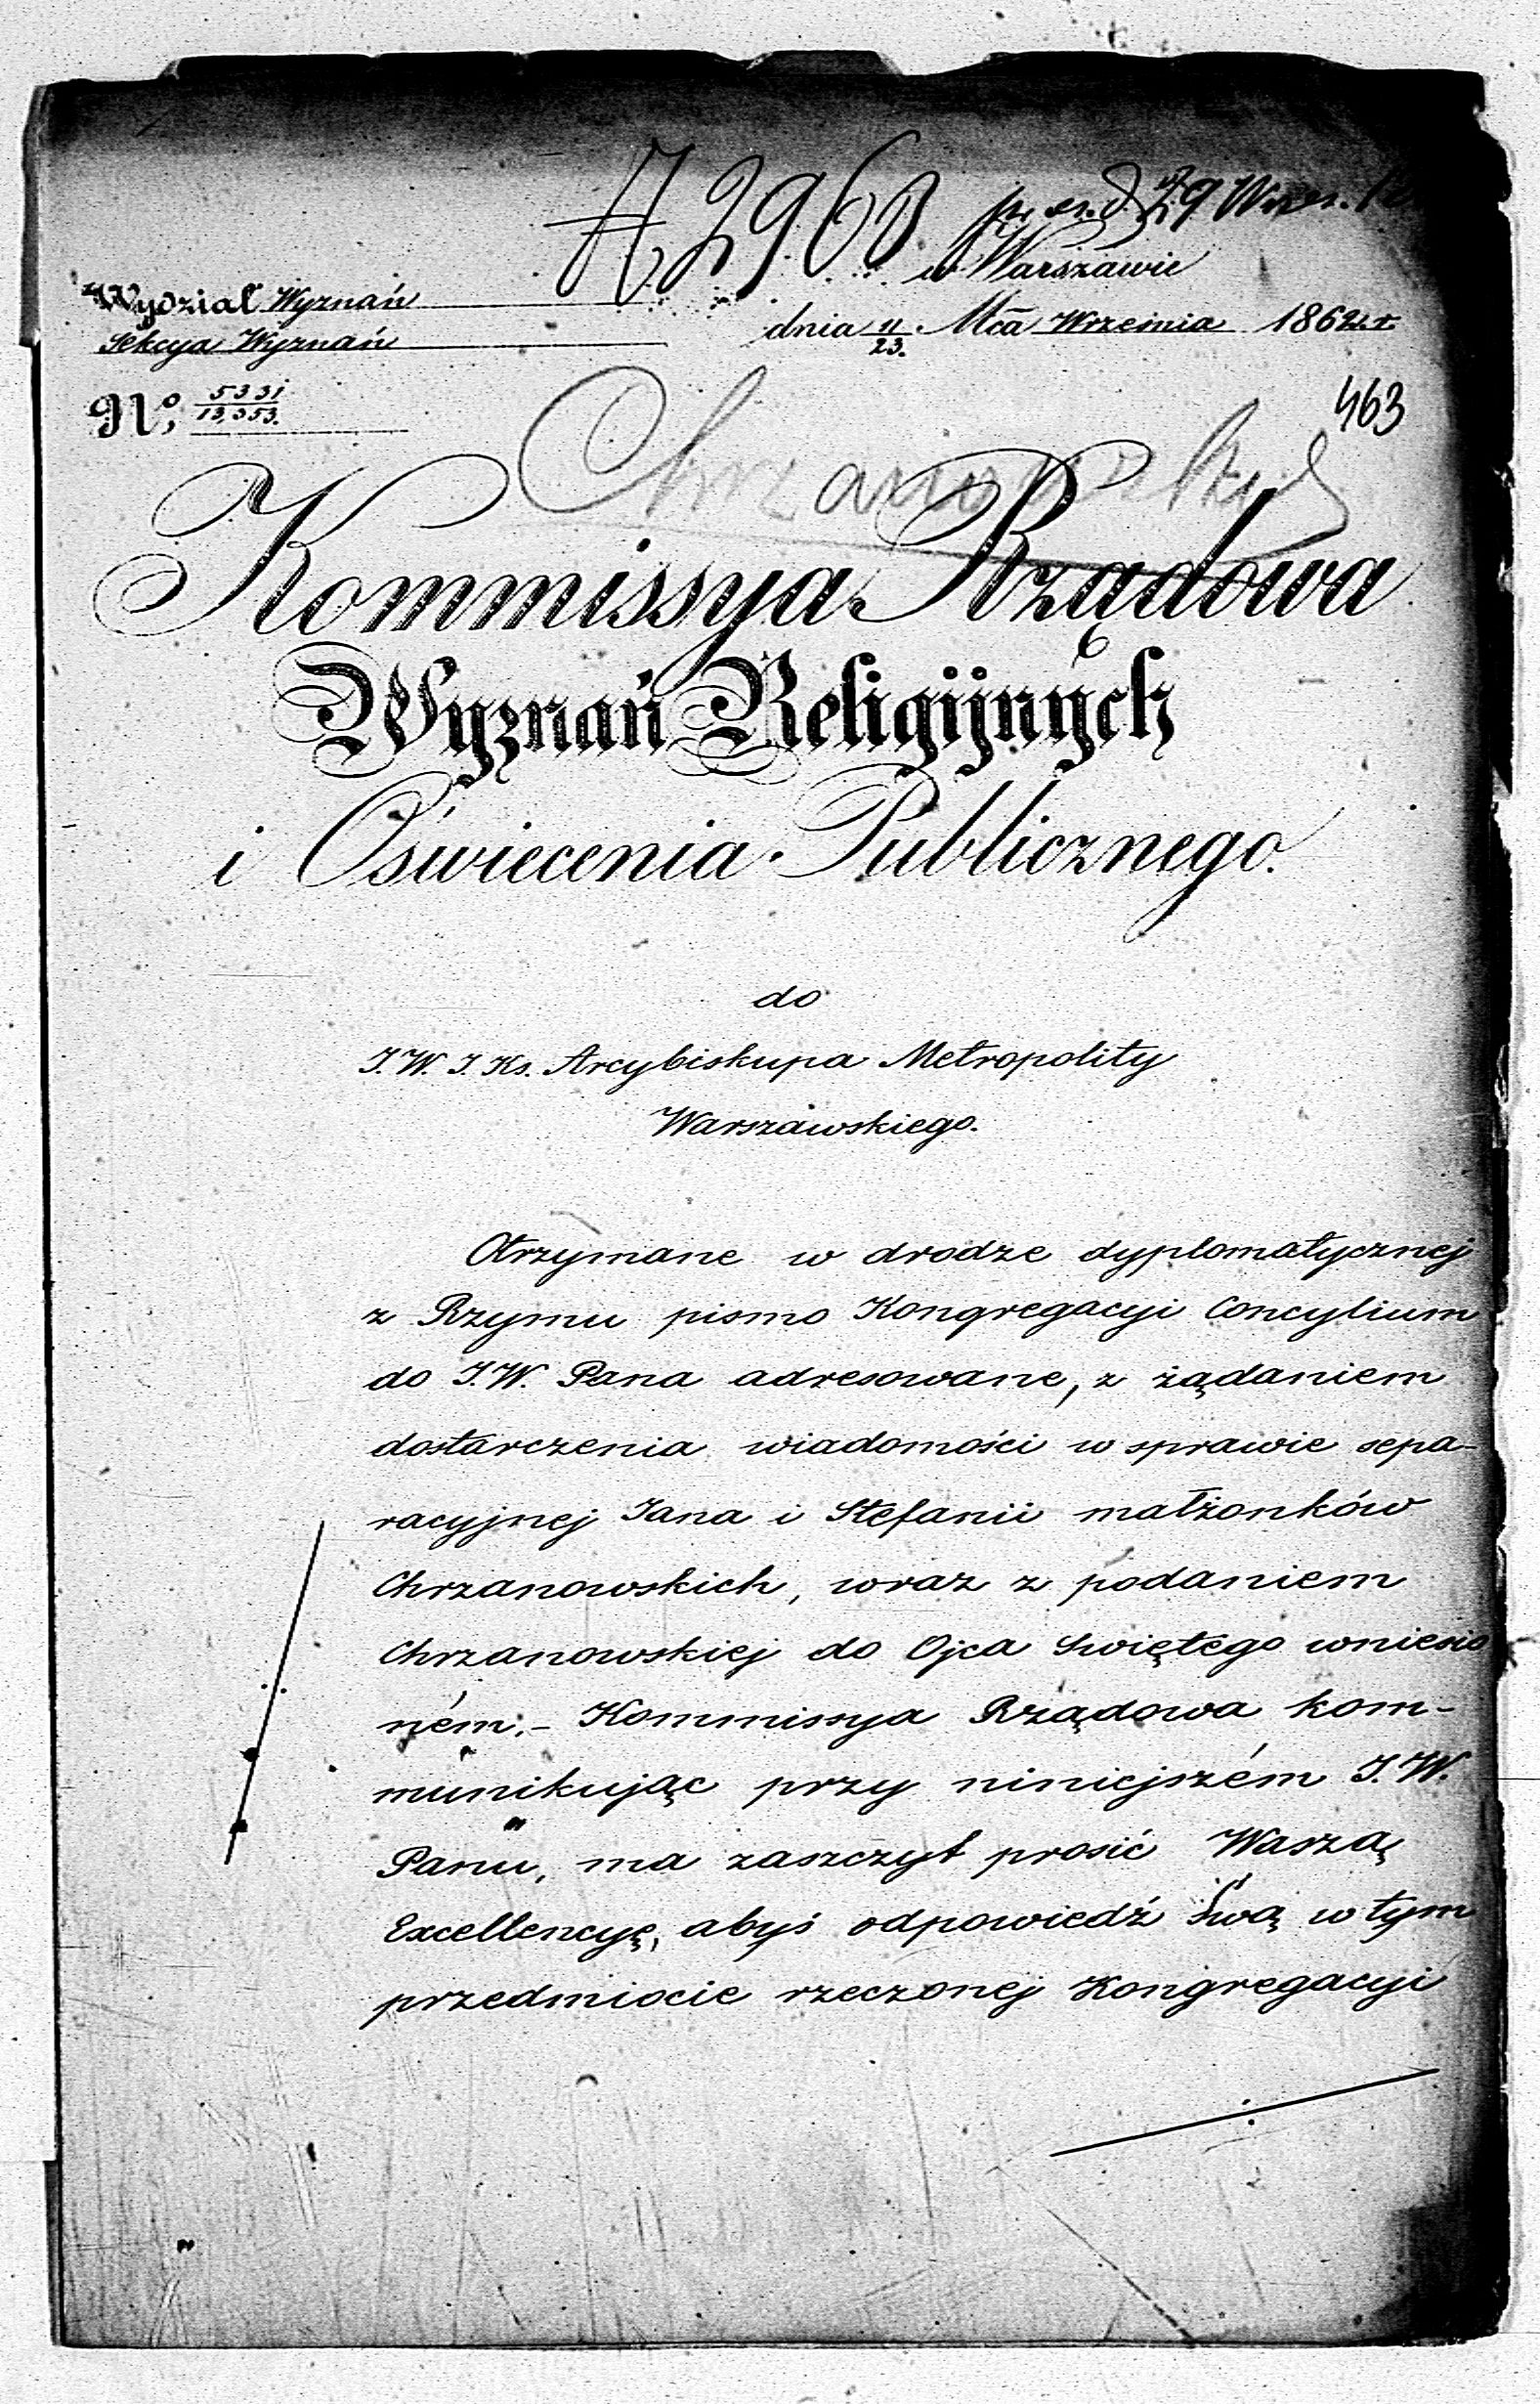 A 2963 pr. d. 29 Wrześ.
w Warszawie
Wydział Wyznań
dnia 11/23. Mca Września 1862 r.
Sekcya Wyznań
No; 5331/13,353.
463
Chrzanowskich
Kommissya Rządowa
Wyznań Religijnych
i Oświecenia Publicznego.
do
J.W. J. Ks. Arcybiskupa Metropolity
Warszawskiego.
Otrzymane w drodze dyplomatycznej
z Rzymu pismo Kongregacyi Concylium
do J.W. Pana adresowane, z żądaniem
dostarczenia wiadomości w sprawie sepa-
racyjnej Jana i Stefanii małżonków
Chrzanowskich, wraz z podaniem
Chrzanowskiej do Ojca Swiętego wniesio
ném; - Kommissya Rządowa kom-
munikując przy niniejszém J.W.
Panu, ma zaszczyt prosić Waszą
Excellencyę, abyś odpowiedź Swą w tym
przedmiocie rzeczonej Kongregacyi